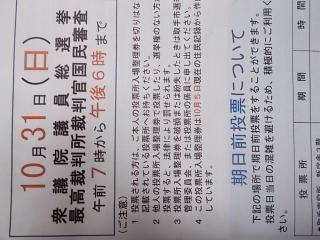 10月31日(日)
衆議院議員総選挙
最高裁判所裁判官国民審査
午前7時から午後6時まで
(ご注意)
1 投票される方は、ご本人の投票所入場整理券を切りはな
記載されている投票所へお持ちください。
2 他人の投票所入場整理券で投票したり、選挙権のない方
投票すると、法律により罰せられます。
3 投票所入場整理券を破損または紛失したときは取手市選
管理委員会、または投票所の係員に申し出てください。
4 この投票所入場整理券は10月5日現在の住民記録から作
しています。
期日前投票について
下記の場所で期日前投票をすることができます。
投票日当日の混雑を避けるため、積極的にご利用く
さい。
投票所
期間
時間